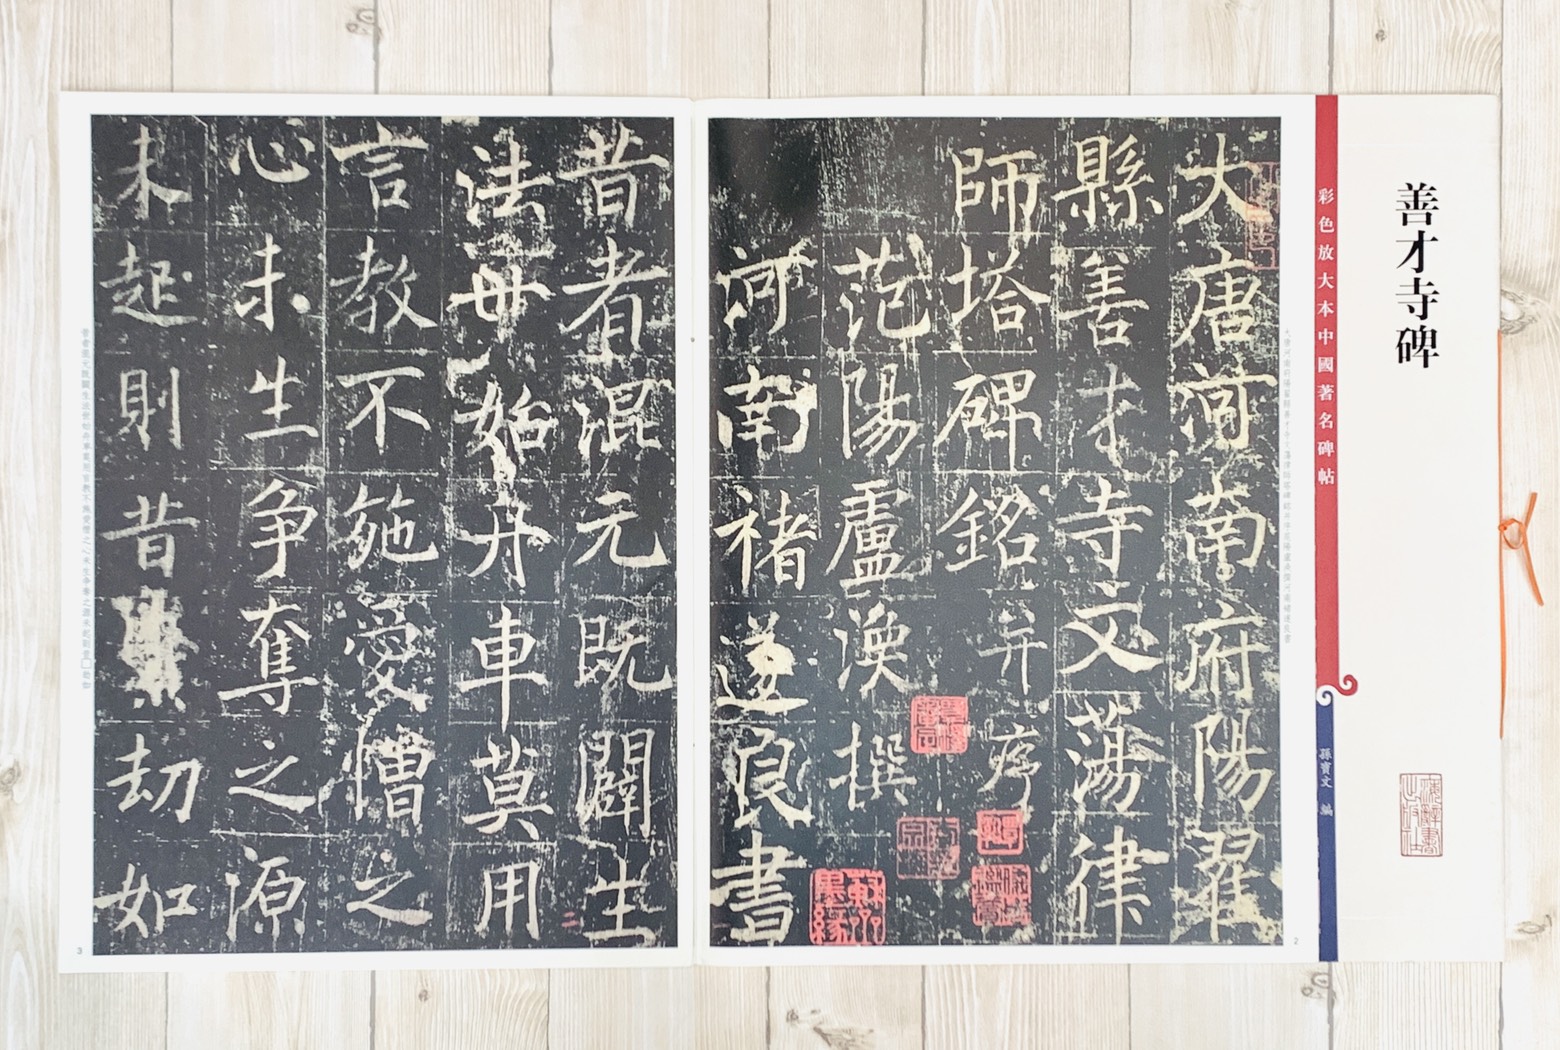 善才寺碑
彩色放大本中國著名碑帖
孫寶文 編
大唐河南府陽翟
縣善才寺文蕩律
師塔碑銘并序
范陽盧渙撰
河南褚遂良書
2
昔者混元既闢生
法母始舟車莫用
言教不施愛憎之
心未生争奪之源
未起則昔劫如
3